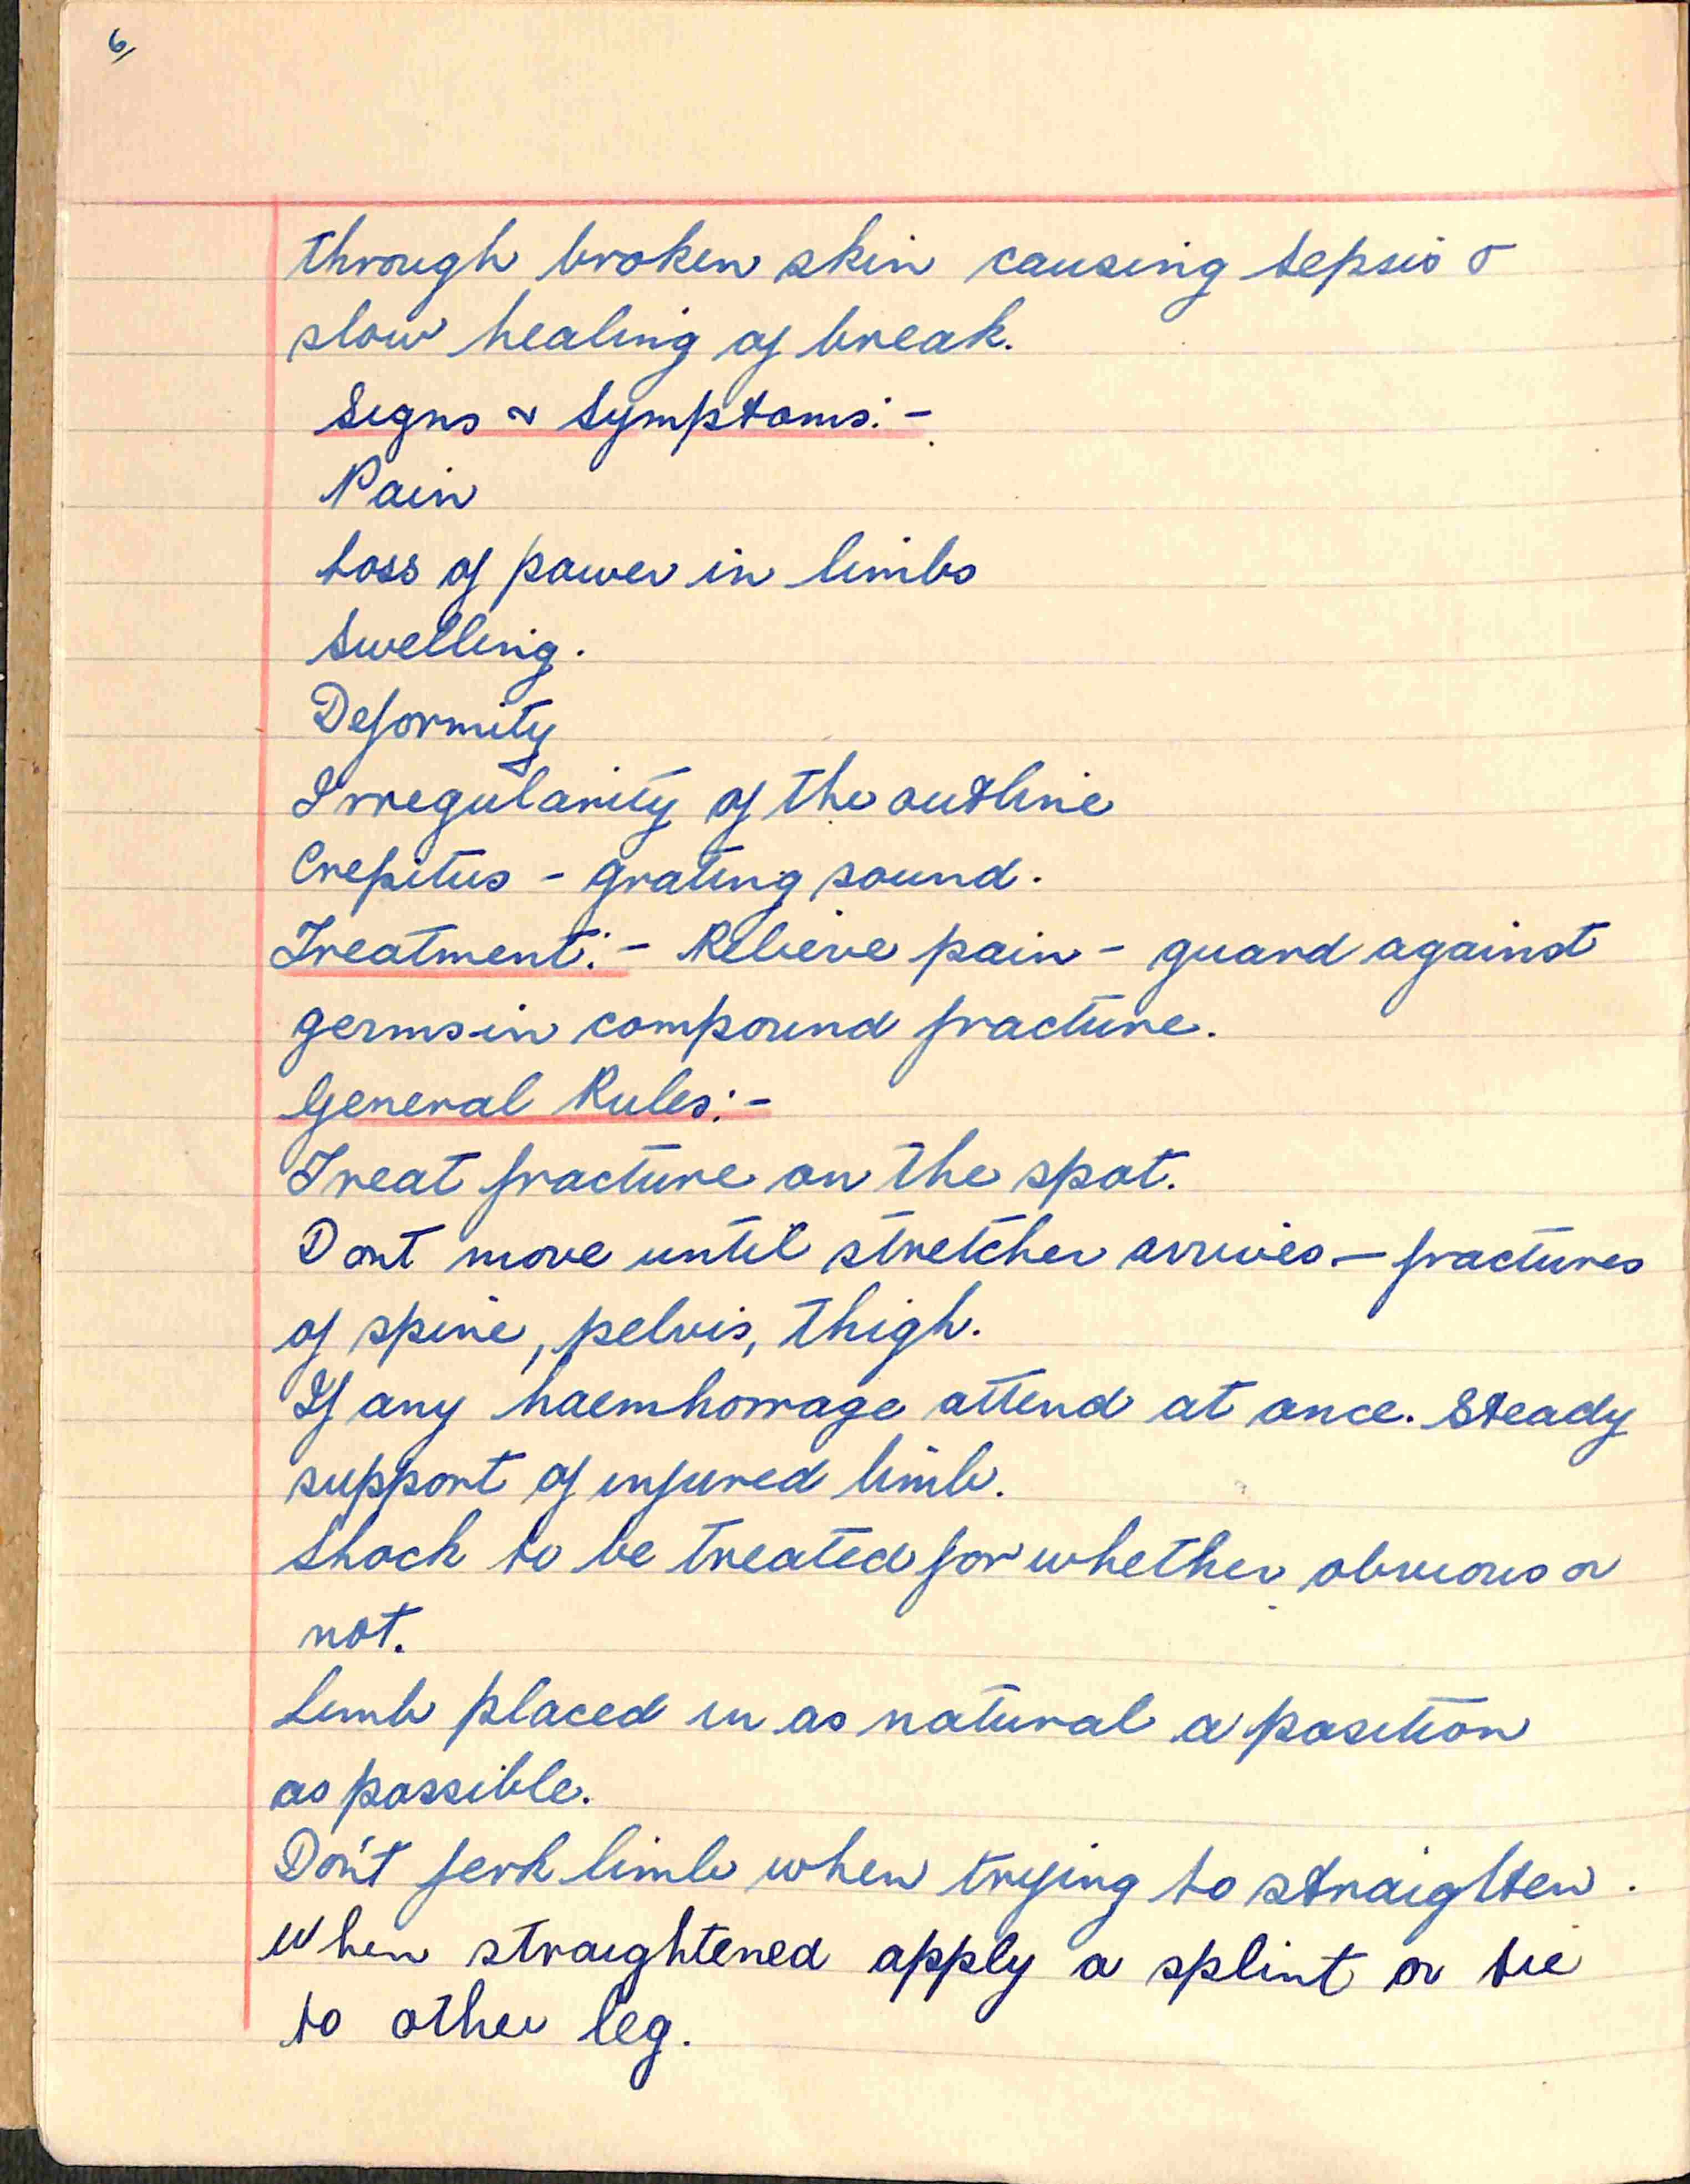 6/
through broken skin causing sepsis &
slow healing of break.
Signs & Symptoms:-
Pain
Loss of power in limbs
Swelling.
Deformity
Irregularity of the outline
Crepitus - grating sound.
Treatment:- Relieve pain - guard against
germs in compound fracture.
General Rules:-
Treat fracture on the spot.
Dont move until stretcher arrives - fractures
of spine, pelvis, thigh.
If any haemhorrage attend at once. Steady
support of injured limb.
Shock to be treated for whether obvious or
not.
Limb placed in as natural a position
as possible.
Don't jerk limb when trying to straighten.
When straightened apply a splint or tie
to other leg.